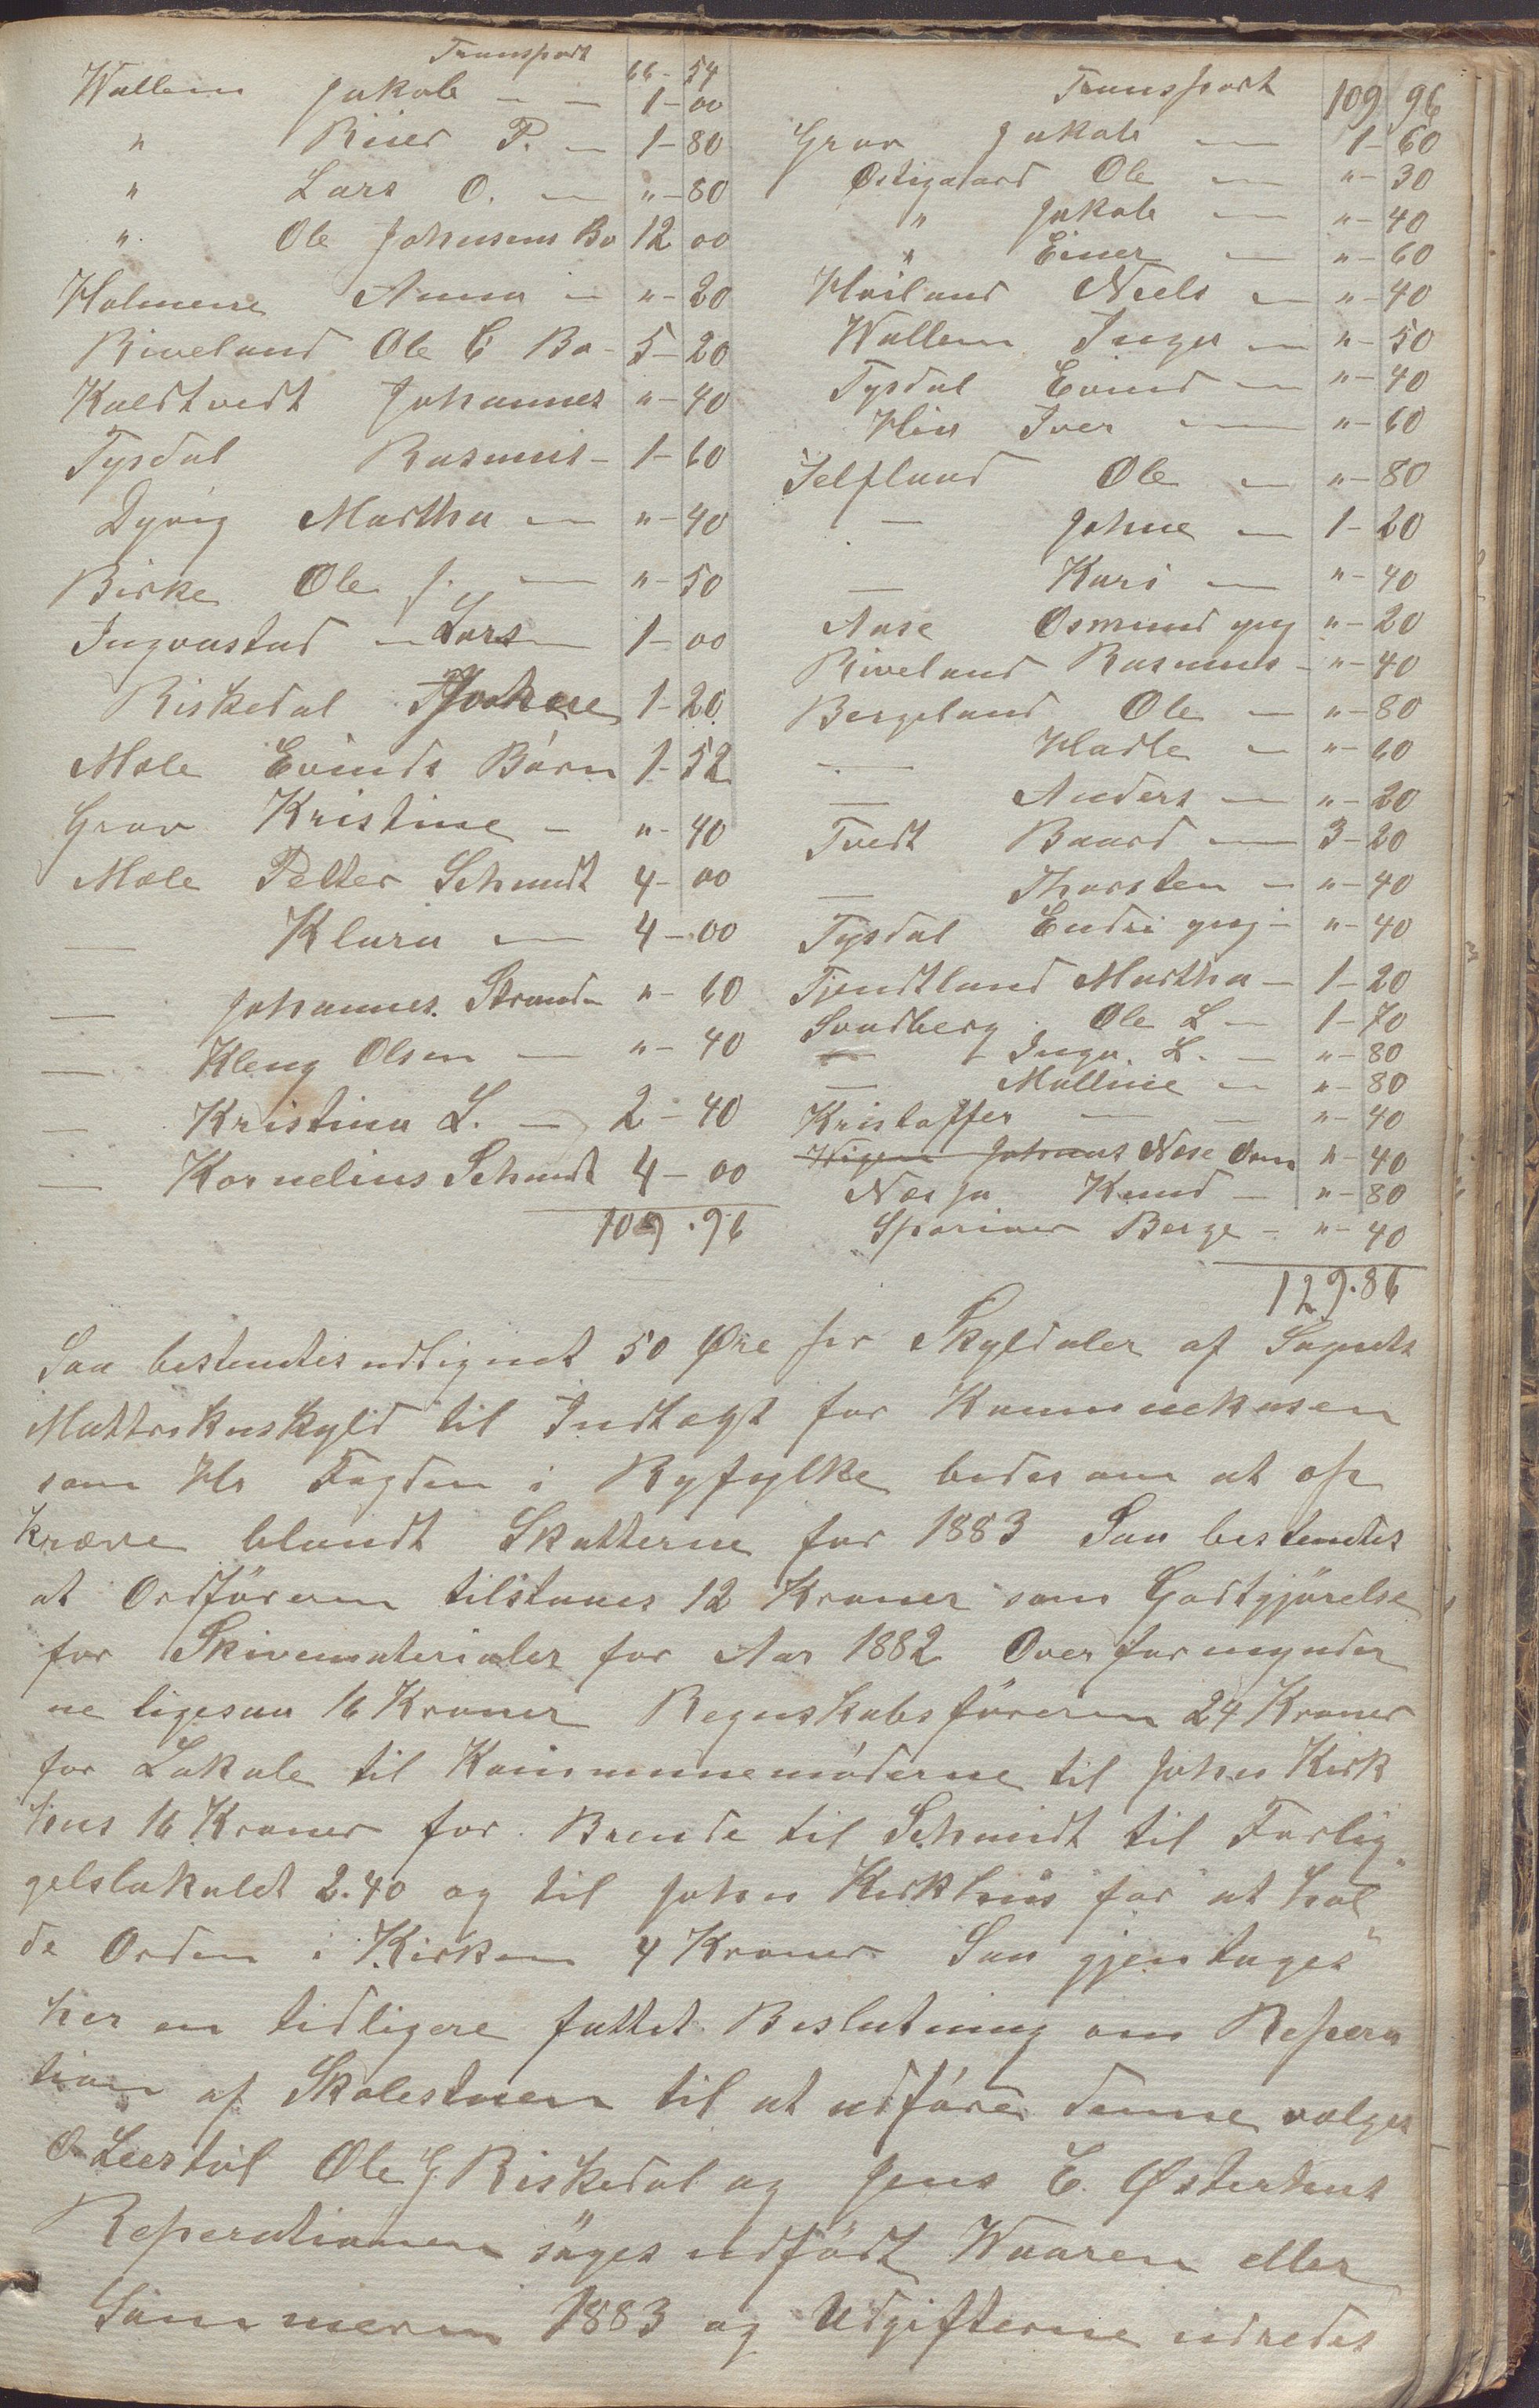 Transport 66-54
Wallem Jakob - - 1-00
" Riner P. - 1-80
" Lars O. - "-80
" Ole Johnsens Bo 12 00
Holmene Anna - "-20
Riveland Ole E Bo - 5-20
Kaldtvedt Johannes "-40
Tysdal Rasmus - 1-60
Dyvig Martha - "-40
Birke Ole J. - "-50
Ingvastad - Lars 1-00
Riskedal 1-20
Mæle Evinds Børn 1-52
Grav Kristine - "-40
Mæle Petter Schmidt 4-00
— Klara - 4-00
— Johannes Strand "-60
— Kleng Olsen - "-40
— Kristina L. - 2-40
— Kornelius Schmidt 4-00
109.96
Transport 109 96
Grav Jakob - 1-60
Østigaard Ole - "-30
" Jakob - "-40
" Einer - "-60
Høiland Niels - "-40
Wallem Inger - "-50
Tysdal Evind - "-40
Hia Iver - "-60
Jelfland Ole - "-80
— Johne - 1-20
— Kari - "-40
Aase Osmund yng "-20
Riveland Rasmus - "-40
Bergeland Ole - "-80
— Hadle - "-60
— Anders - "-20
Tvedt Baard - 3-20
— Thorsten - "-40
Tysdal Endri yng - "-40
Tjendtland Martha - 1-20
Svadberg Ole L - 1-70
— Inga. L. - "-80
— Malline - "-80
Kristoffer - - "-40
Johans Næse "-40
Næsja Knud - "-80
Berge - "-40
129.86
Saa bestemtes udlignet 50 Øre per Skyldaler af Sognets
Mattrikuskyld til Indtægt for Kommunekasen
som Hr Fogden i Ryfylke bedes om at op
kræve blandt Skatterne for 1883 Saa bestemtes
at Ordføreren tilstaaes 12 Kroner som Godtgjørelse
for Skivematerialer for Aar 1882 Overformynder
ne ligesaa 16 Kroner Regnskabsføreren 24 Kroner
for Lokale til Kommunemøderne til John Kirk
hus 16 Kroner for Brende til Schmidt til Forlig
gelslokalet 2.40 og til John Kirkhus for at hol"
de Orden i Kirken 4 Kroner Saa gjentages"
her en tidligere fattet Beslutning om Repera
tion af Skolestuen til at udføre denne vælges
O Leerstøl Ole G Riskedal og Jens E. Østerhus
Reperationen søges udført Waaren eller
Sommeren 1883 og Udgifterne udredes